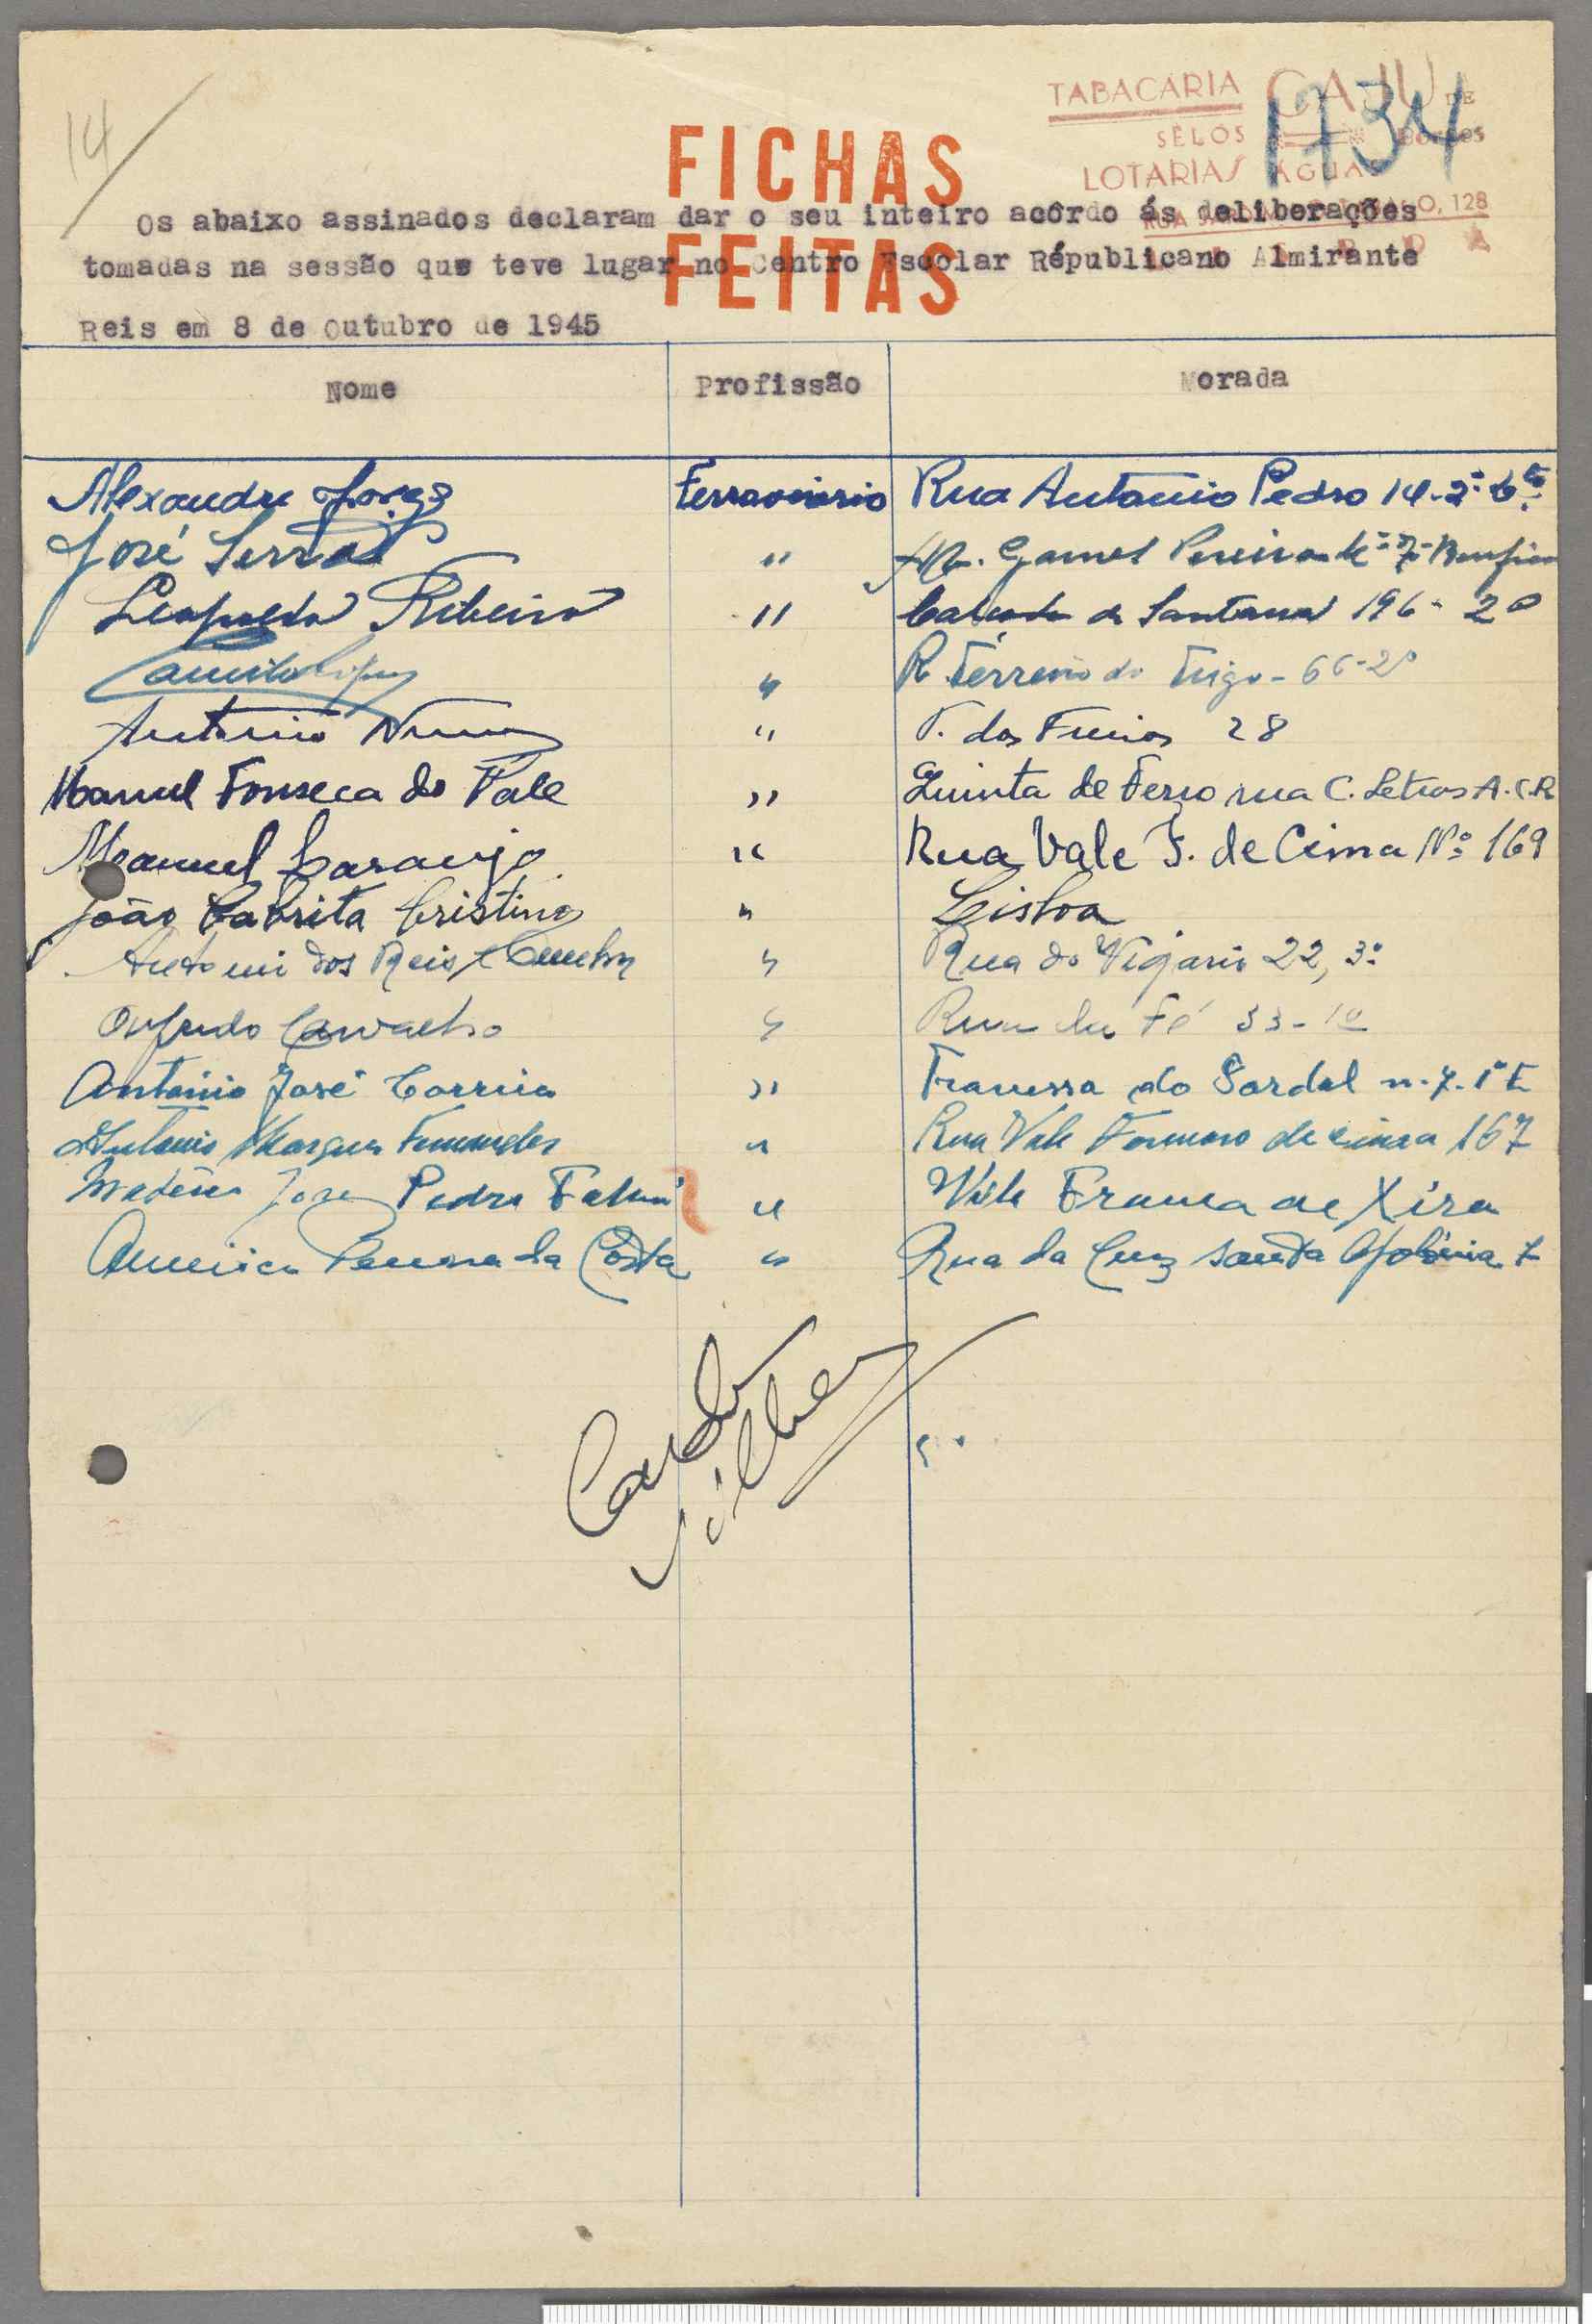 14
TABACARIA CAJU DE
SÊLOS
LOTARIAS ÁGUA
1734
FICHAS
FEITAS
128
Os abaixo assinados declaram dar o seu inteiro acôrdo ás deliberações
tomadas na sessão que teve lugar no Centro Escolar Républicano Almirante
Reis em 8 de Outubro de 1945
Nome Profissão Morada
Alexandre Jorge Ferroviario Rua Antonio Pedro 14-2º
José Serra " Gomes Pereira
Leopoldo Ribeiro " Calçada de Santana 196-2º
Camilo Lopes " R. Terreiro do Trigo-66-2º
Antonio Nunes " T. das 28
Manuel Fonseca do Vale " Quinta de Ferro rua C. Letras A.C.R
Manuel Caraujo " Rua Vale F. de Cima Nº 169
João Cabrita Cristino " Lisboa
Antonio dos Reis Cunha " Rua do Vigario 22, 3º
Carvalho " Rua da Fé 33-1º
Antonio José Correia " Travessa do Sardal n.7.1º E
Antonio Marques Fernandes " Rua Vale Formoso de cima 167
José Pedro " Vila Franca de Xira
Pereira da Costa " Rua da Cruz Santa Apolónia